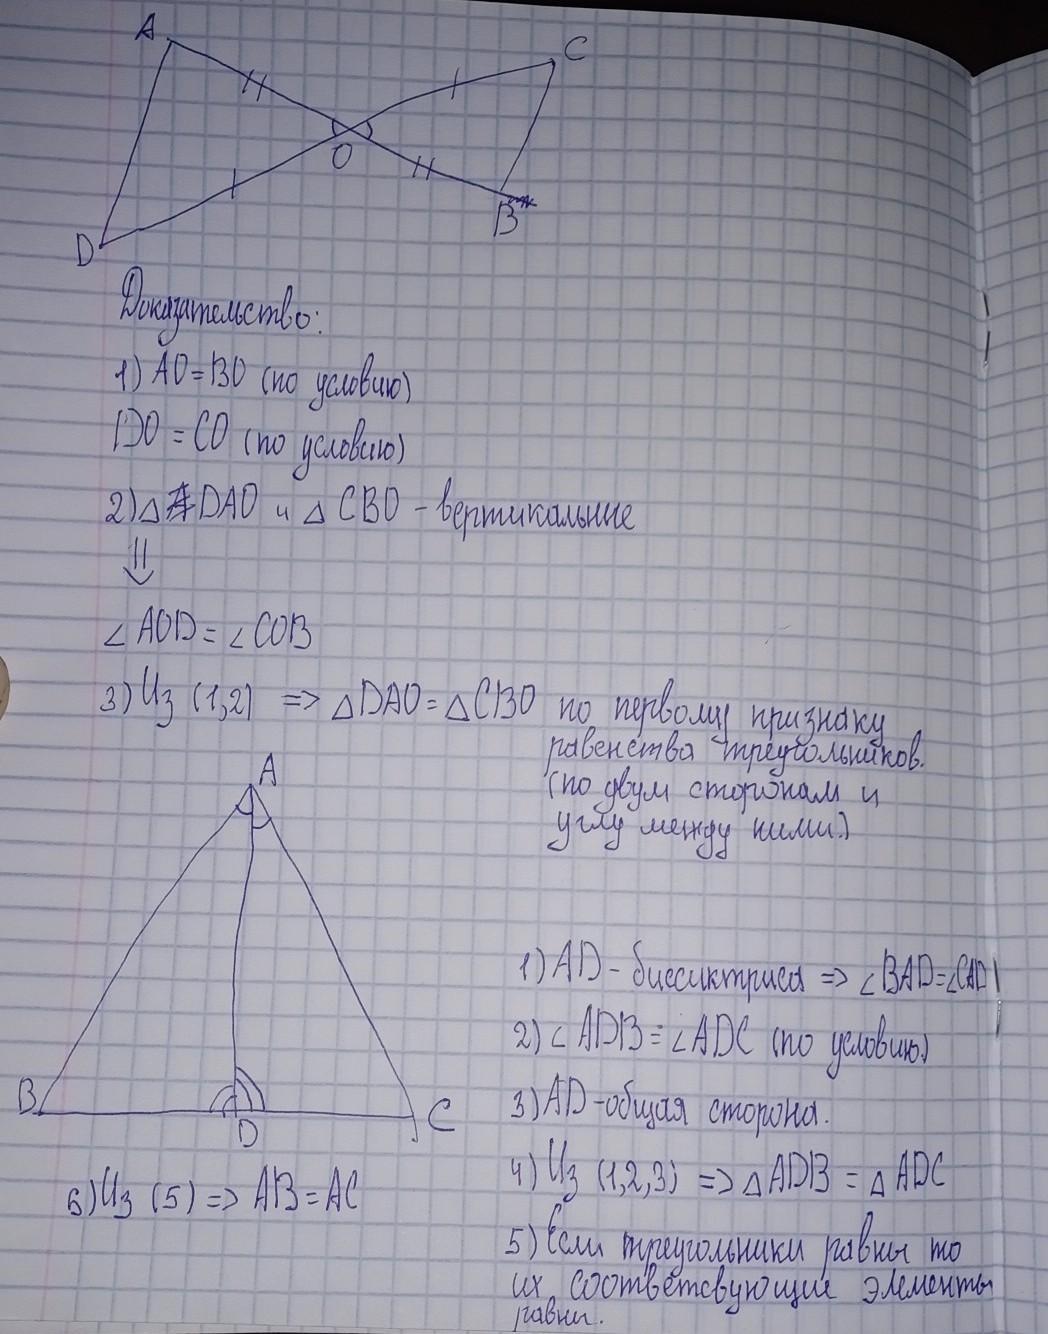 A
C
O
B
D
Доказательство:
1) AO=BO (по условию)
DO = CO (по условию)
2) △ DAO и △ CBO - вертикальные
⇓
∠AOD = ∠COB
3) Из (1,2) => △DAO = △CBO по первому признаку
равенства треугольников.
(по двум сторонам и
углу между ними.)
A
B
D
C
1) AD - биссиктриса => ∠BAD=∠CAD
2) ∠ADB = ∠ADC (по условию)
3) AD - общая сторона.
4) Из (1,2,3) => △ADB = △ADC
5) Если треугольники равны то
их соответсвующие элементы
равны.
6) Из (5) => AB = AC